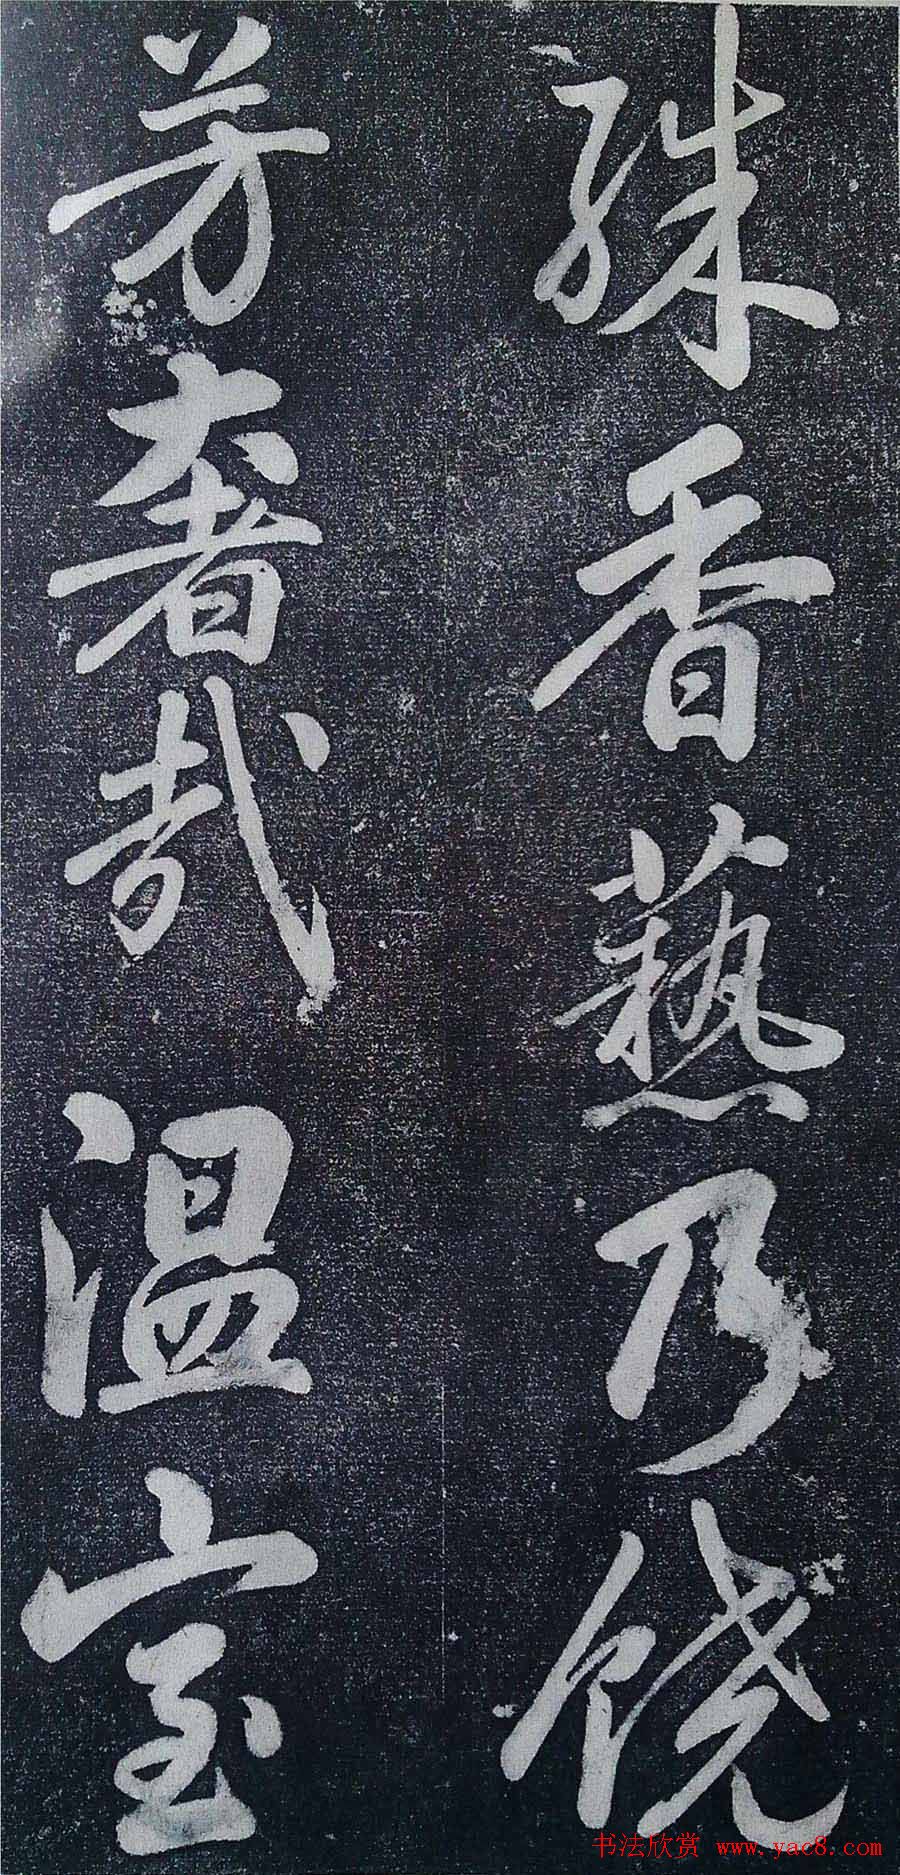 殊香爇乃饒
芳奢哉温室
书法欣赏 www.yac8.com